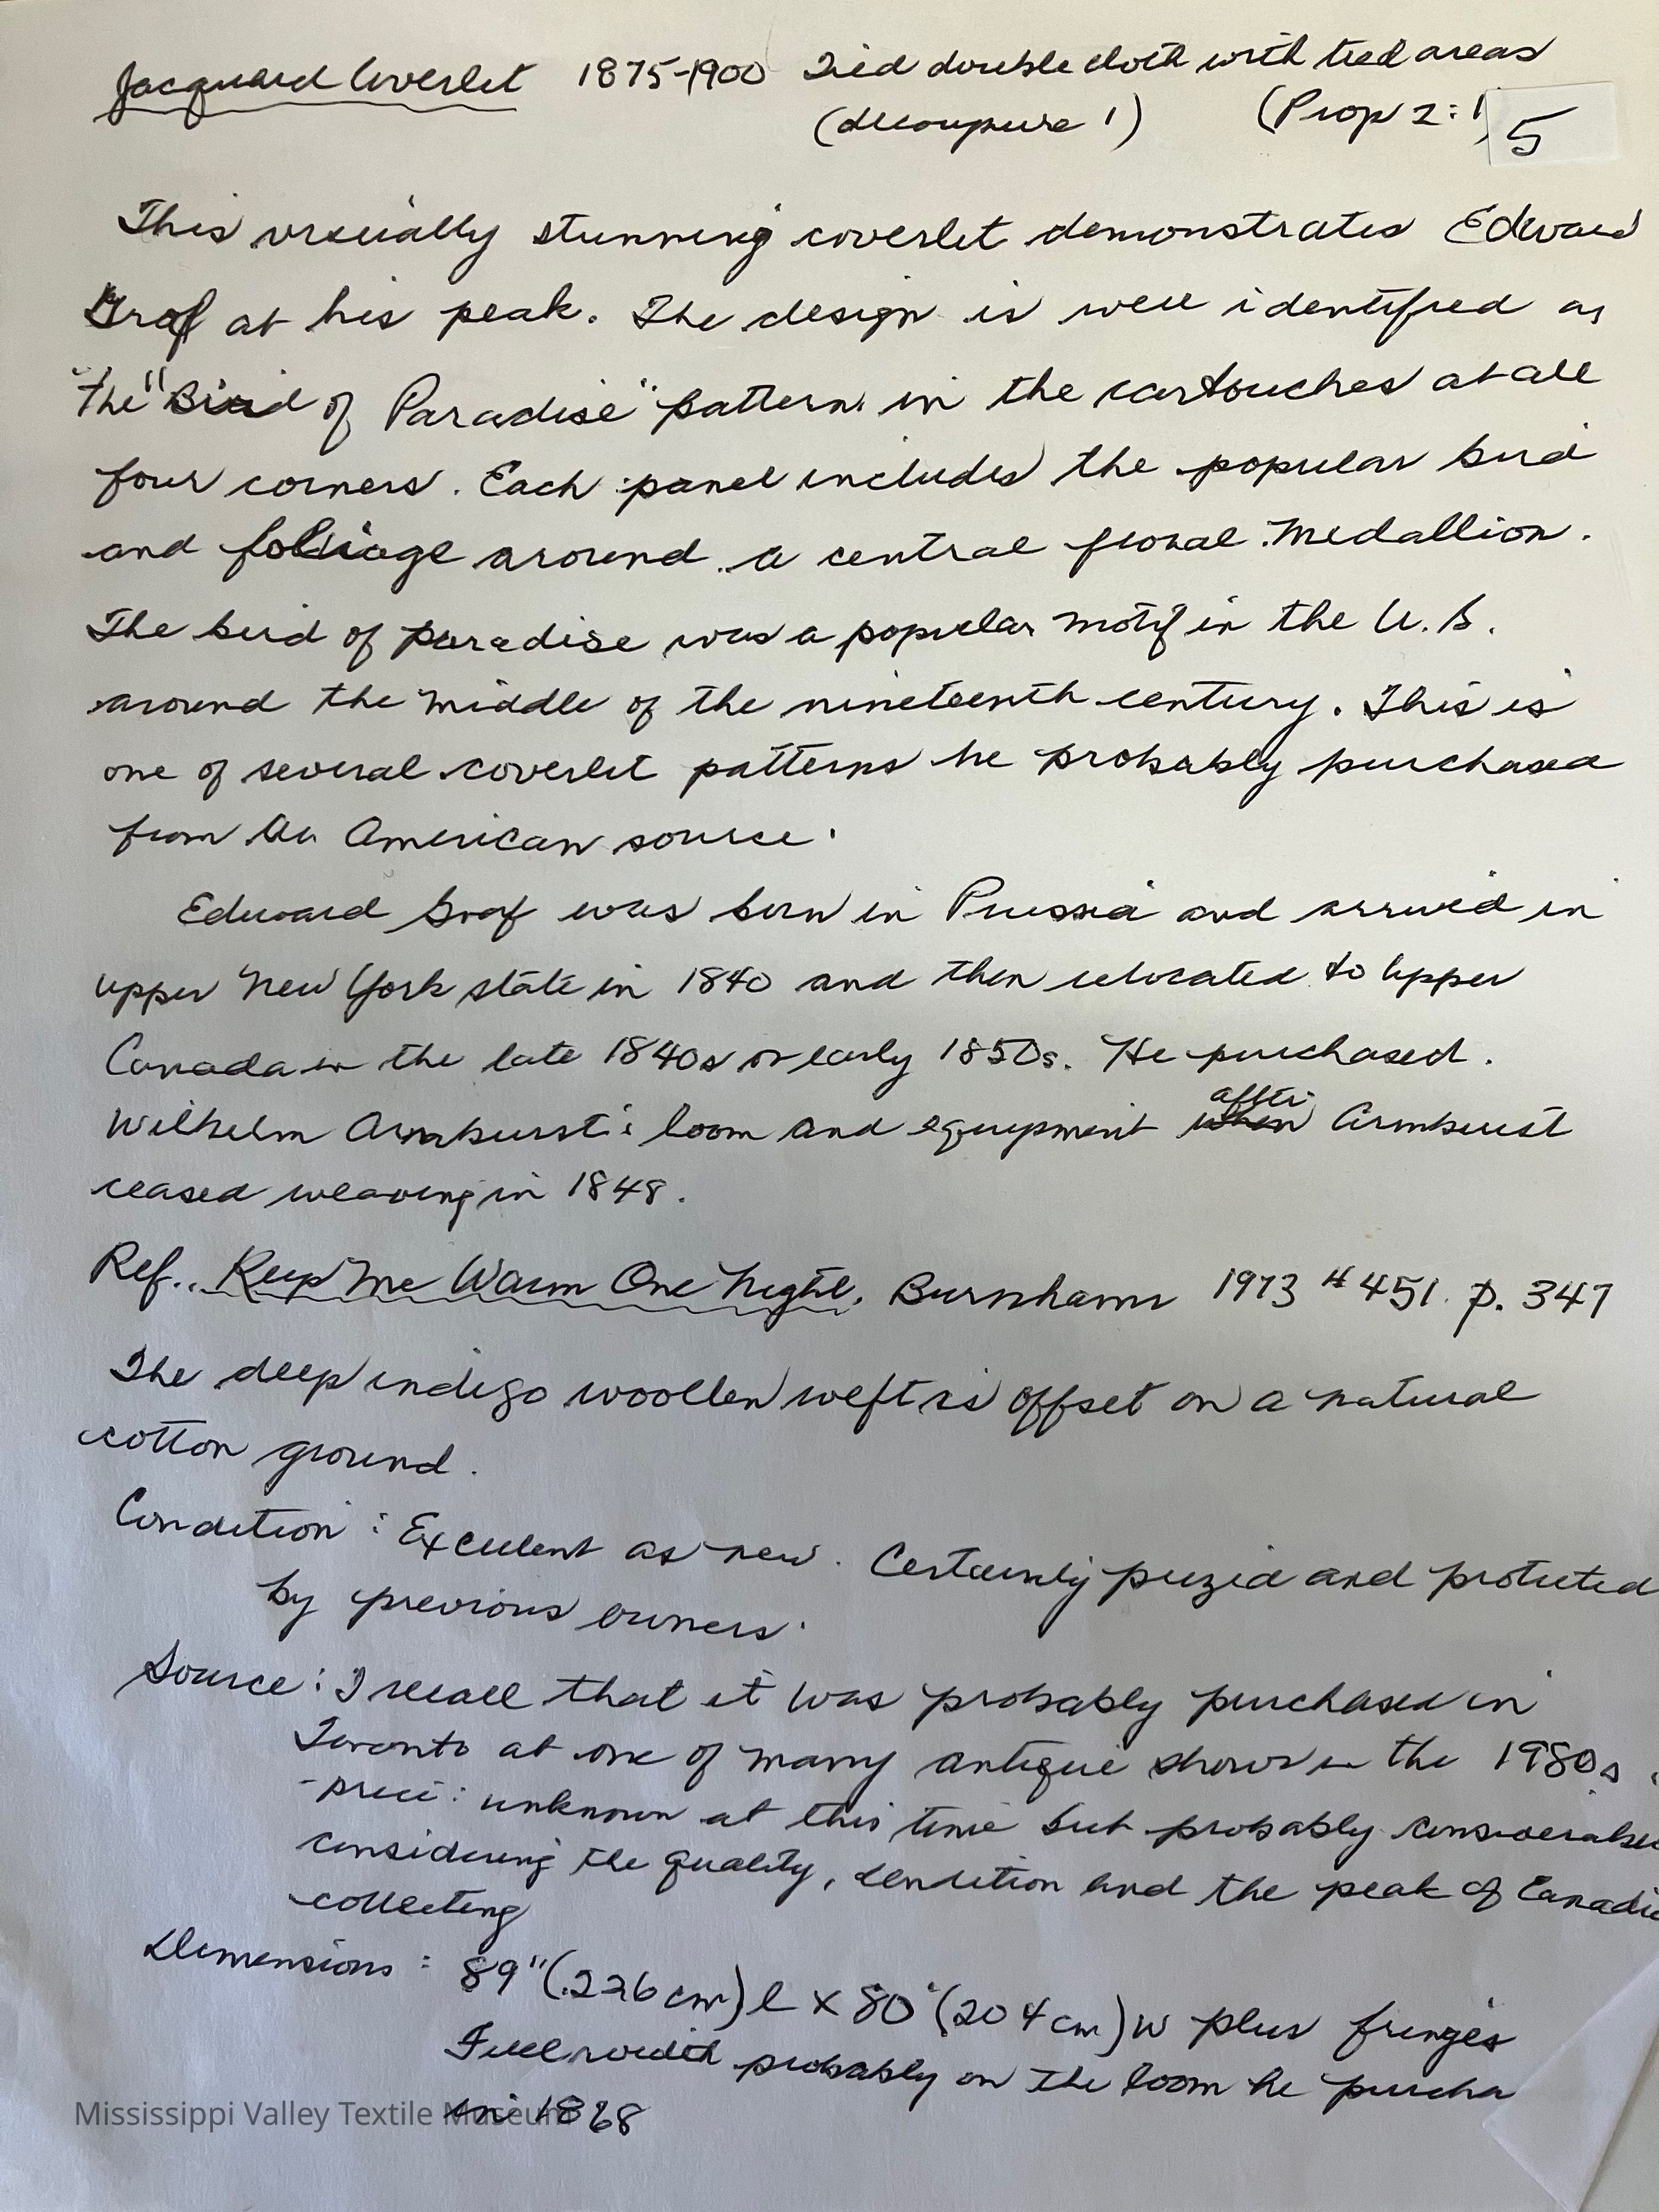 Jacquard Coverlet 1875-1900 Tied double cloth with tied areas
(decoupure 1) (Prop 2:1) 5
This visually stunning coverlet demonstrates Edward
Graf at his peak. The design is well identified as
the "Bird of Paradise" pattern in the cartouches at all
four corners. Each panel includes the popular bird
and foliage around a central floral medallion.
The bird of paradise was a popular motif in the U.S.
around the middle of the nineteenth century. This is
one of several coverlet patterns he probably purchased
from an American source.
Edward Graf was born in Prussia and arrived in
upper New York state in 1840 and then relocated to Upper
Canada in the late 1840s or early 1850s. He purchased
after
Wilhelm Armburst's loom and equipment when Armburst
ceased weaving in 1848.
Ref.. Keep Me Warm One Night, Burnham 1973 #451. p. 347
The deep indigo woollen weft is offset on a natural
cotton ground.
Condition: Excellent as new. Certainly prized and protected
by previous owners.
Source: I recall that it was probably purchased in
Toronto at one of many antique shows in the 1980s.
- price: unknown at this time but probably
considering the quality, condition and the peak of
collecting
Dimensions: 89" (226 cm) l x 80" (204 cm) w plus fringes
Full width probably on the loom he purcha
in 1868
Mississippi Valley Textile Museum